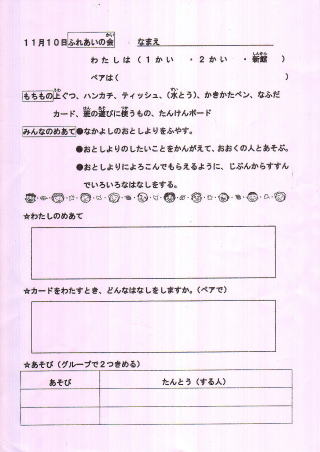 11月10日ふれあいの会　なまえ
わたしは（1かい　・2かい　・新館　）
ペアは（　）
もちもの上ぐつ、ハンカチ、ティッシュ、（水とう）、かきかたペン、なふだ
カード、昔の遊びに使うもの、たんけんボード
みんなのめあて●なかよしのおとしよりをふやす。
●おとしよりのしたいことをかんがえて、おおくの人とあそぶ。
●おとしよりによろこんでもらえるように、じぶんからすすん
でいろいろなはなしをする。
☆わたしのめあて
☆カードをわたすとき、どんなはなしをしますか。（ペアで）
☆あそび（グループで2つきめる）
あそび　たんとう（する人）